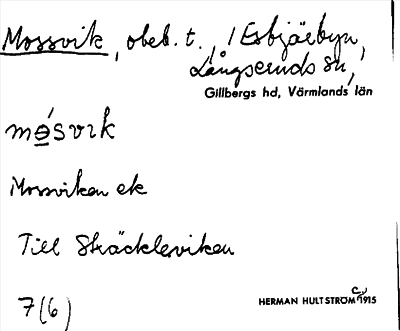 Mossvik, obeb. t., / Esbjörbyn,
Långseruds sn,
Gillbergs hd, Värmlands län
mǫ́svɪk
Mossviken ek
Till Skäckleviken
7(6)
HERMAN HULTSTRÖM 1915